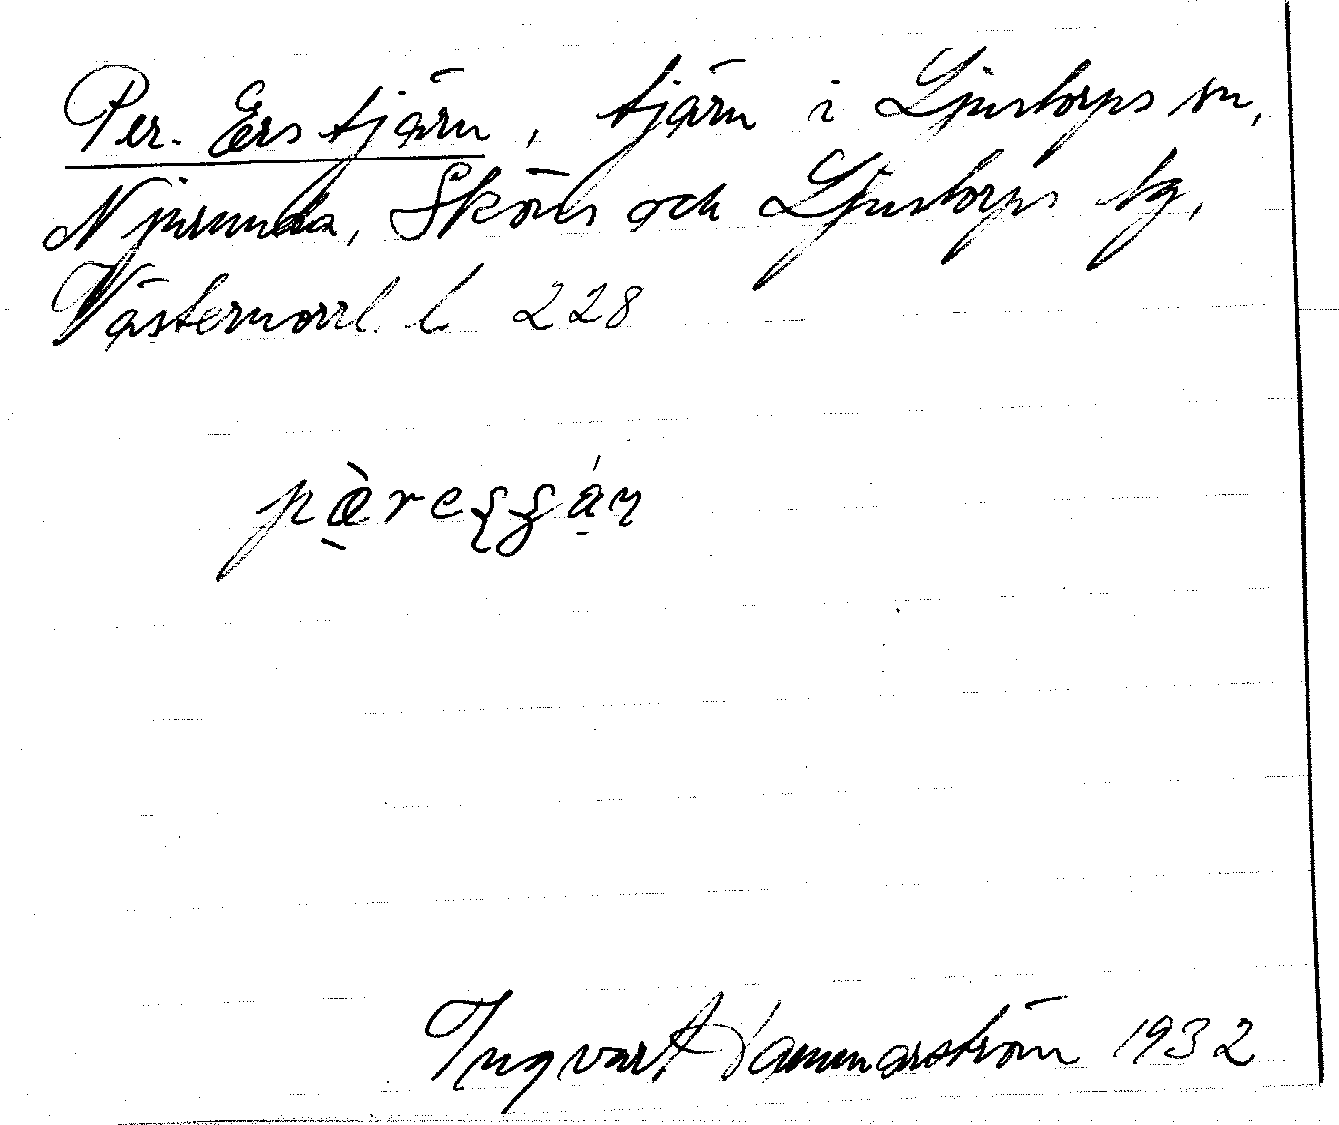 Per-Ers tjärn, tjärn i Ljustorps sn,
Njurunda, Sköns och Ljustorps tg,
Västernorrl. l. 228
Ingvar Hammarström 1932